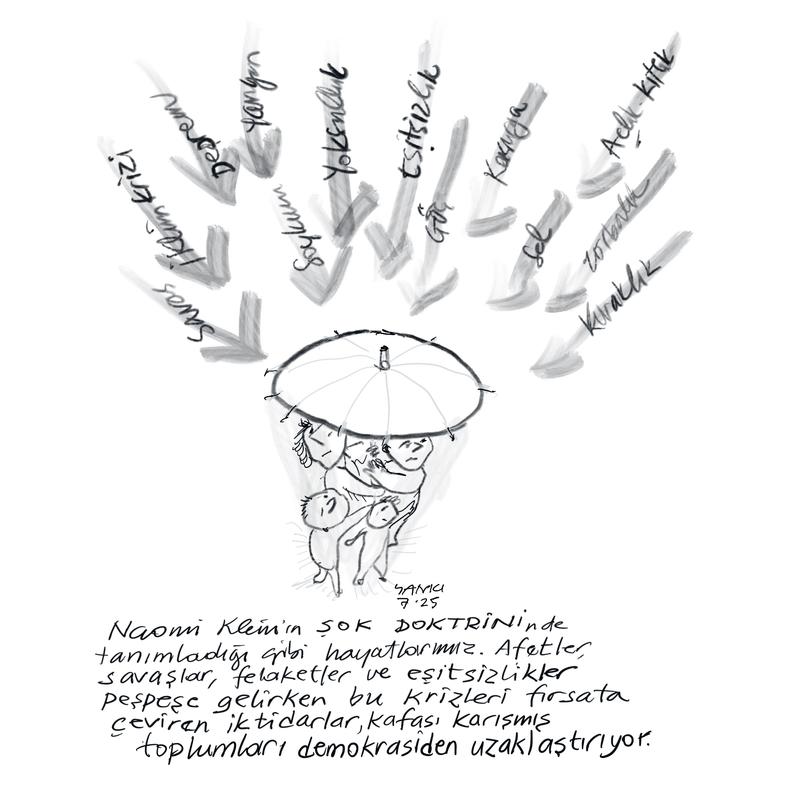 Deprem
Yangın
Yoksulluk
Eşitsizlik
Kavga
Açlık-Kıtlık
İklim Krizi
Soykırım
Göç
Sel
Zorbalık
Savaş
Kuraklık
7.25
Naomi Klein'ın ŞOK DOKTRİNİnde
tanımladığı gibi hayatlarımız. Afetler,
savaşlar, felaketler ve eşitsizlikler
peşpeşe gelirken bu krizleri fırsata
çeviren iktidarlar, kafası karışmış
toplumları demokrasiden uzaklaştırıyor.